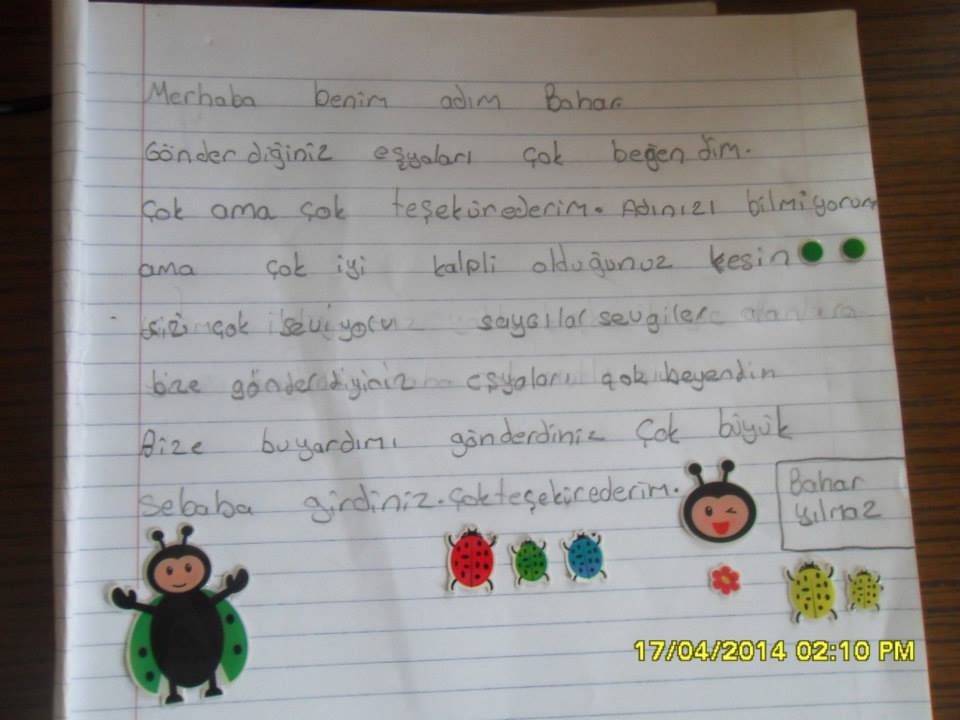 Merhaba benim adım Bahar
Gönderdiğiniz eşyaları çok beğendim.
Çok ama çok teşekürederim. Adınızı bilmiyorum
ama çok iyi kalpli olduğunuz kesin
sizi çok seviyoruz saygılar sevgiler
bize gönderdiyiniz eşyaları çok beyendin
Bize buyardımı gönderdiniz Çok büyük
sebaba girdiniz. Çokteşekürederim.
Bahar
yılmaz
17/04/2014 02:10 PM